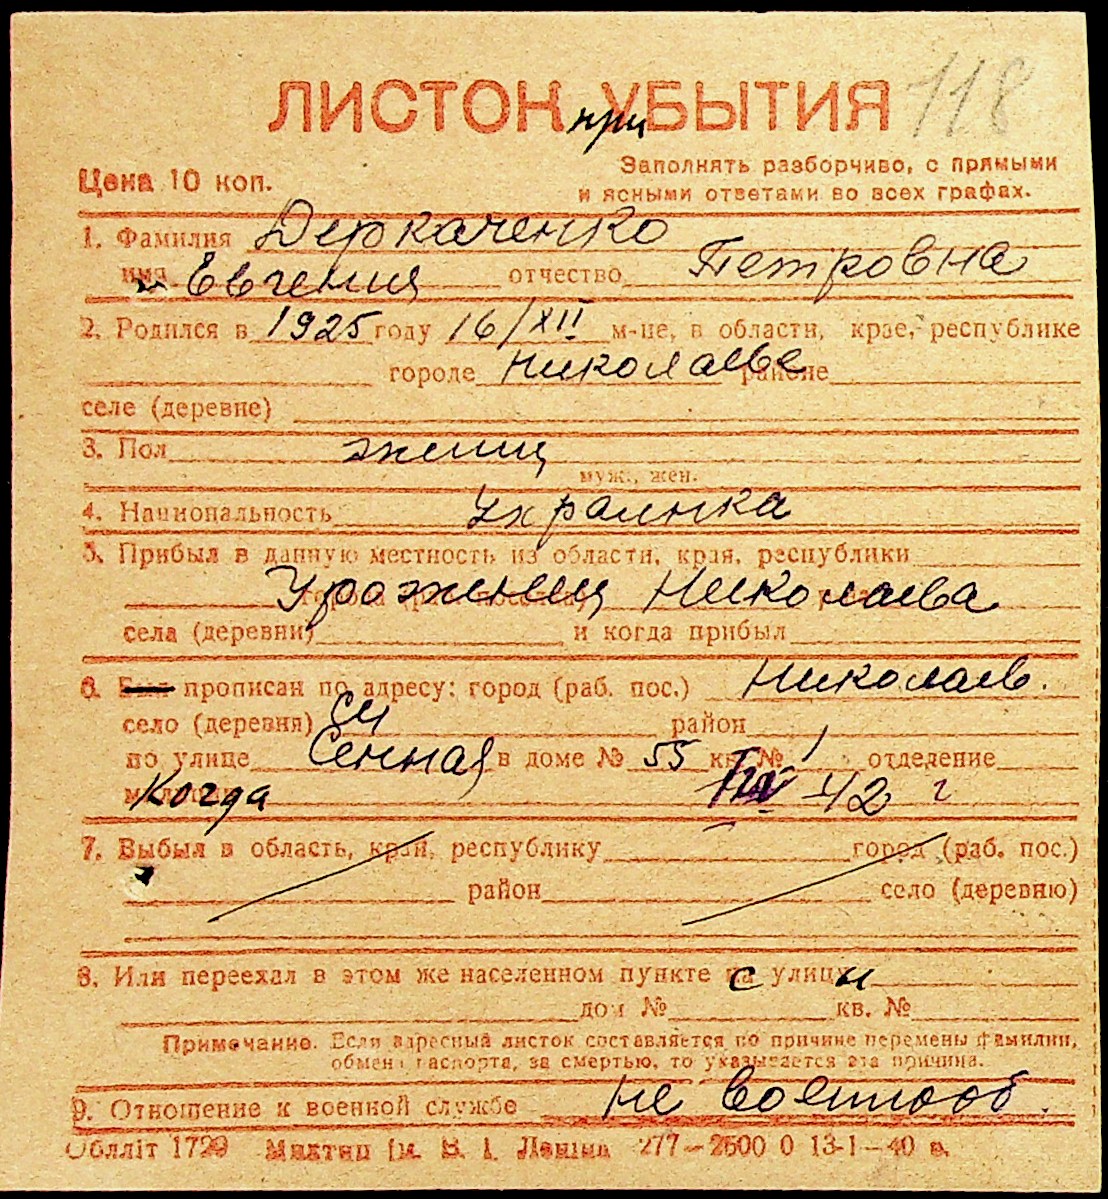 118
ЛИСТОК при УБЫТИЯ
Цена 10 коп.
Заполнять разборчиво, с прямыми
и ясными ответами во всех графах.
1. Фамилия Деркаченко
имя Евгения отчество Петровна
2. Родился в 1925 году 16/XII м-це, в области, крае, республике
городе Николаеве районе
селе (деревне)
3. Пол женщ
муж., жен.
4. Национальность Украинка
5. Прибыл в данную местность из области, края, республики
Уроженец Николаева
села (деревни) и когда прибыл
6. Был прописан по адресу: город (раб. пос.) Николаев.
село (деревня) район
по улице Сенная в доме № 55 кв. № 1 отделение
Когда 42 г
7. Выбыл в область, край, республику город (раб. пос.)
район село (деревню)
8. Или переехал в этом же населенном пункте с улицы
дом № кв. №
Примечание. Если адресный листок составляется по причине перемены фамилии,
обмена паспорта, за смертью, то указывается эта причина.
9. Отношение к военной службе не военнооб.
Облліт 1729 Миктип ім. В. І. Леніна 277—2500 0 13-1—40 в.